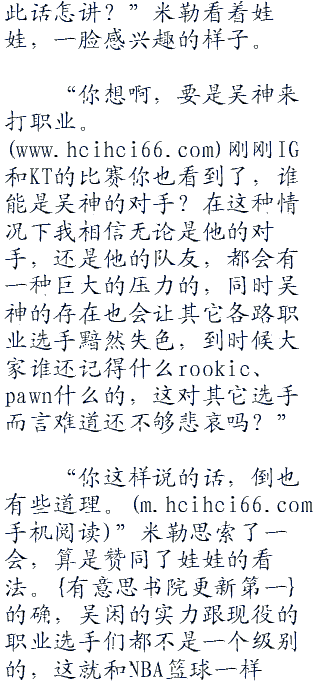 此话怎讲？”米勒看着娃
娃，一脸感兴趣的样子。
“你想啊，要是吴神来
打职业。
(www.hcihci66.com)刚刚IG
和KT的比赛你也看到了，谁
能是吴神的对手？在这种情
况下我相信无论是他的对
手，还是他的队友，都会有
一种巨大的压力的，同时吴
神的存在也会让其它各路职
业选手黯然失色，到时候大
家谁还记得什么rookic、
pawn什么的，这对其它选手
而言难道还不够悲哀吗？”
“你这样说的话，倒也
有些道理。(m.hcihci66.com
手机阅读)”米勒思索了一
会，算是赞同了娃娃的看
法。{有意思书院更新第一}
的确，吴闲的实力跟现役的
职业选手们都不是一个级别
的，这就和NBA篮球一样